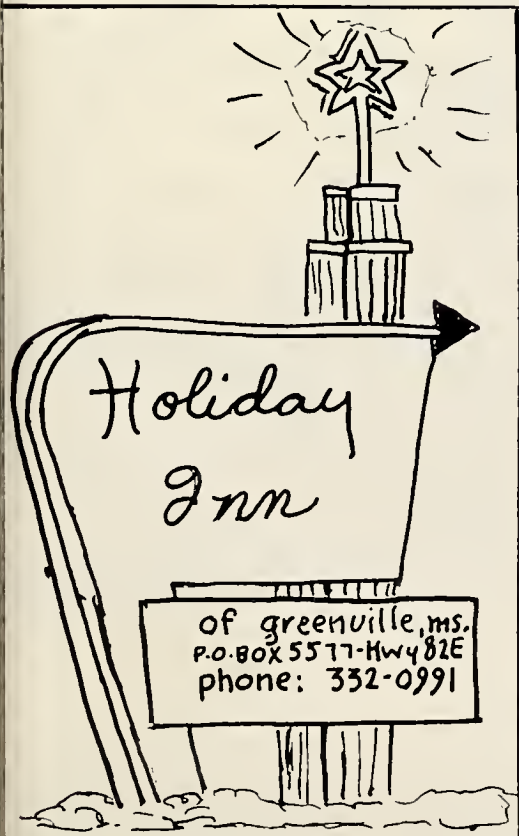 Holiday
Inn
of greenville, ms.
P.O. BOX 5577-Hwy 82E
phone: 332-0991